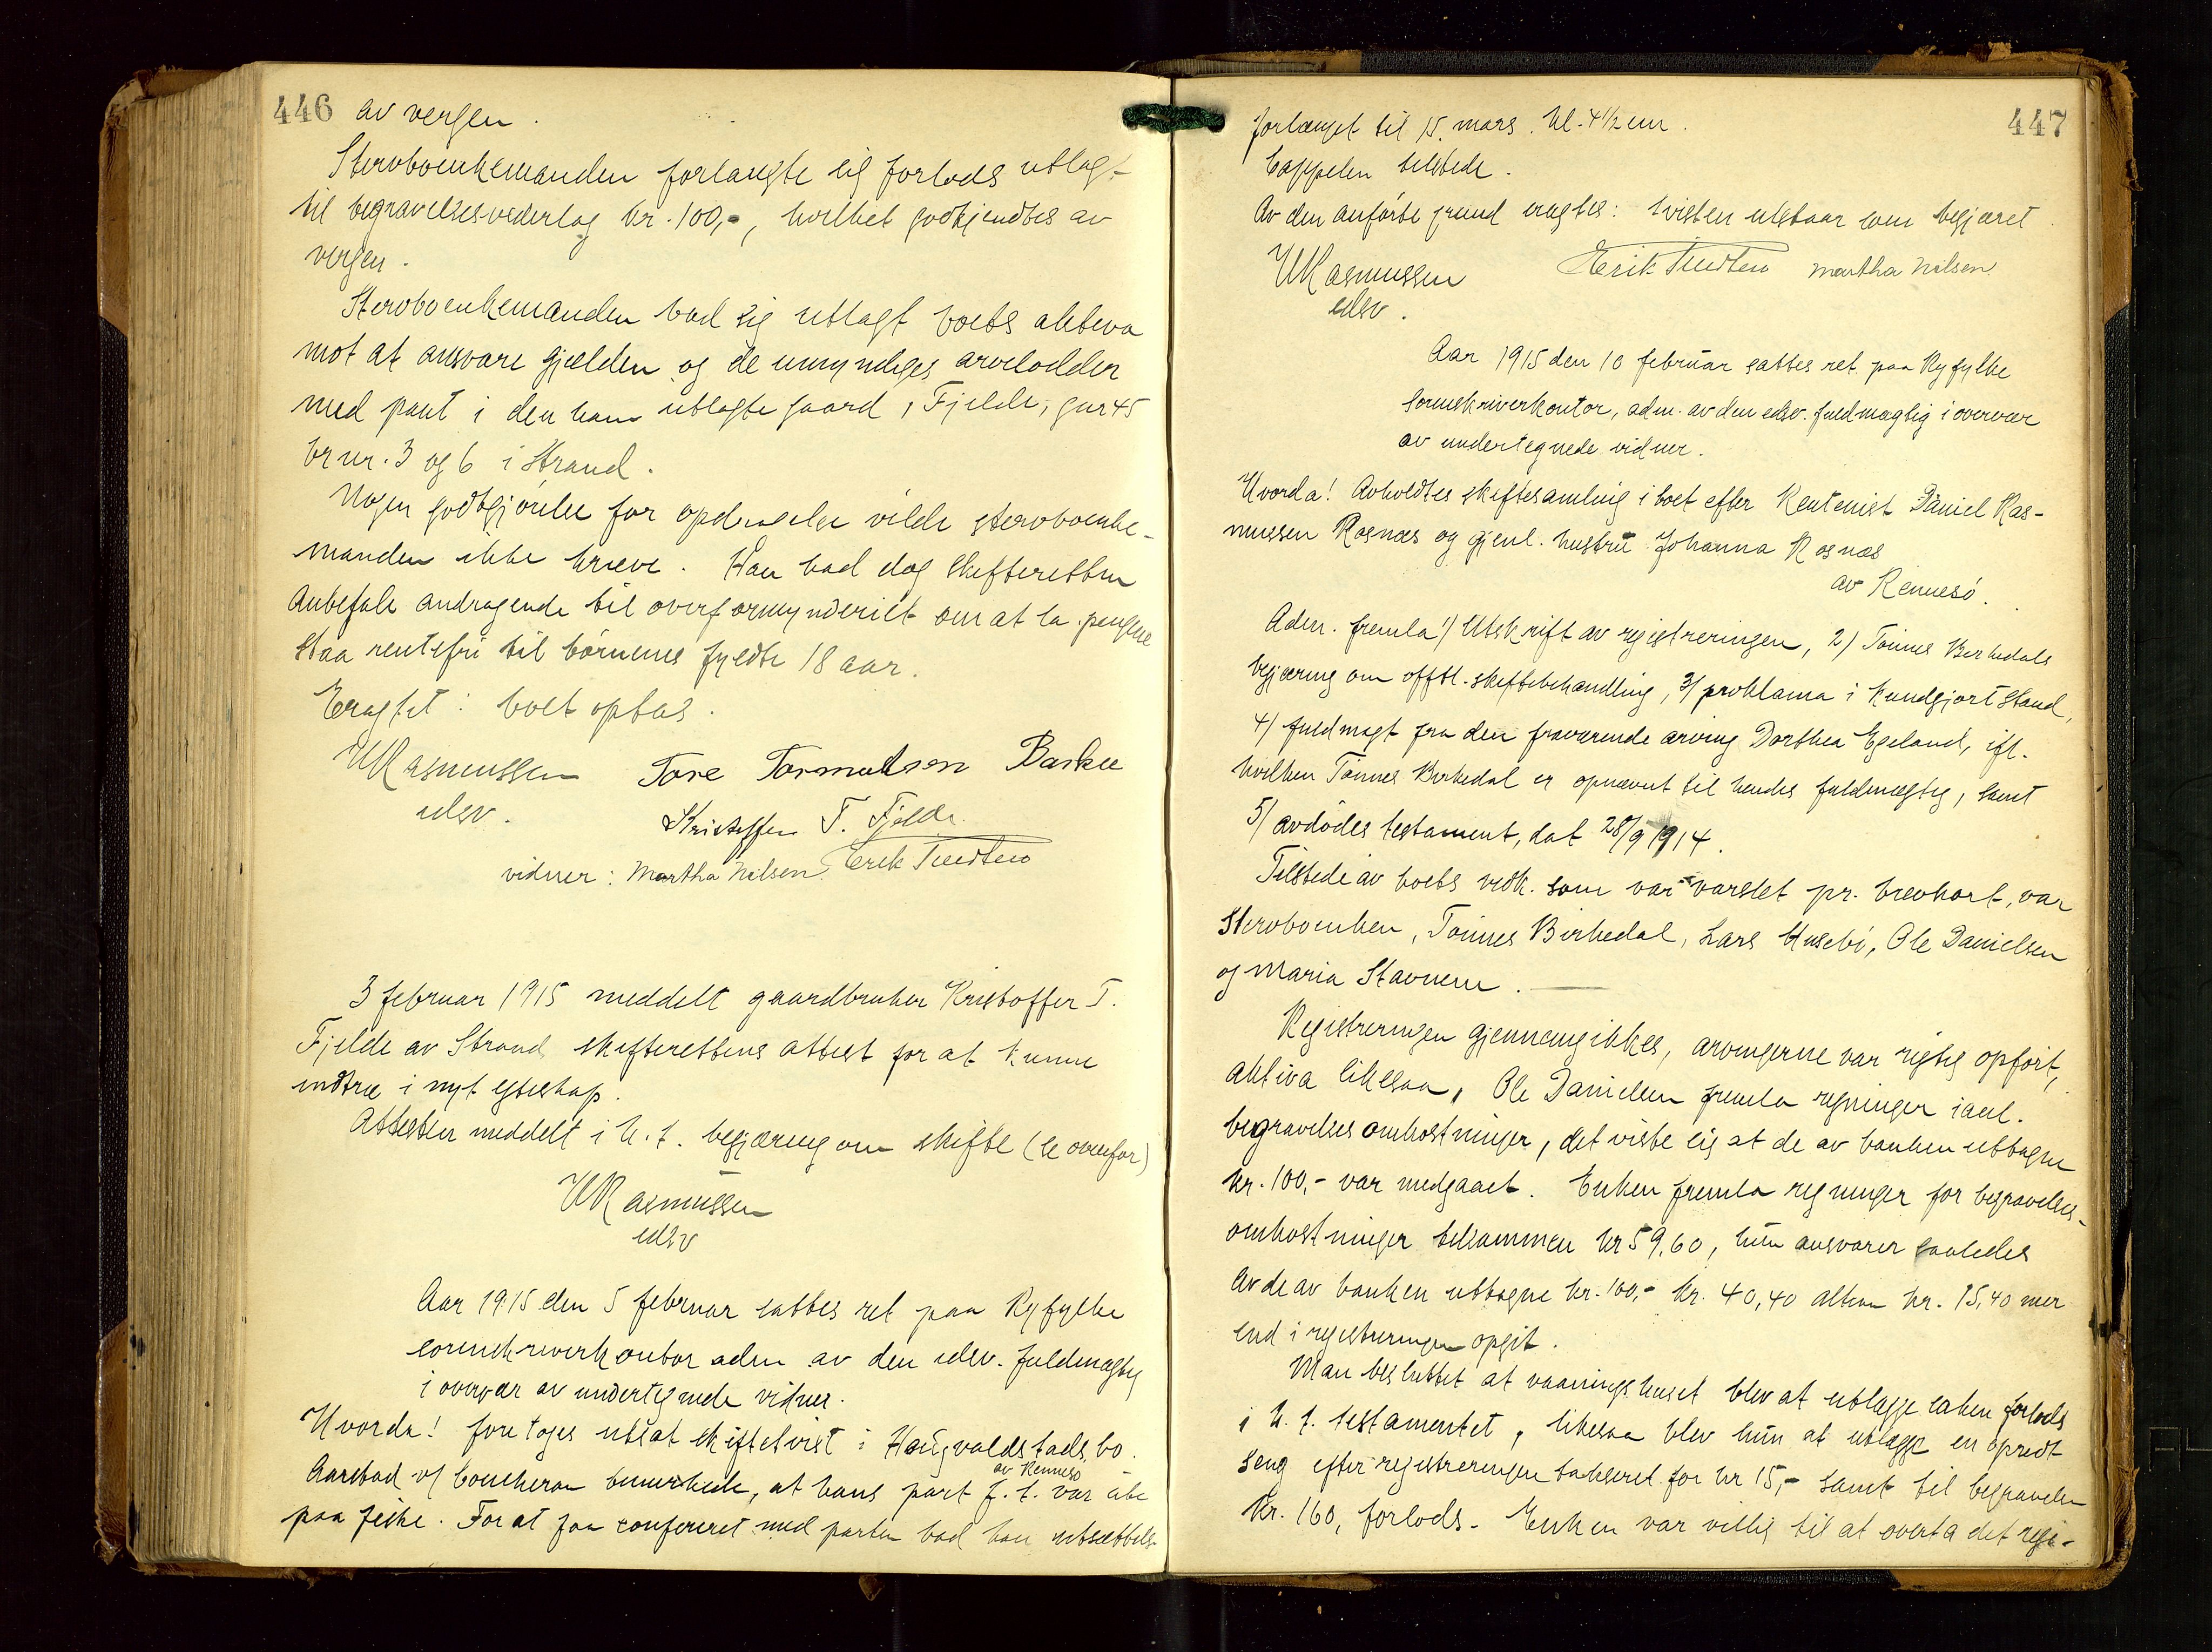 446 av vergen.
Stervboenkemanden forlangte sig forlods utlagt
til begravelsesvederlag kr. 100,-, hvilket godkjendtes av
vergen.
Stervboenkemanden bad sig utlagt boets aktiva
mot at ansvare gjælden og de umyndiges arvelodder
med pant i den ham utlagte gaard, Fjelde, gnr 45
br nr. 3 og 6 i Strand.
Nogen godtgjörelse for opdragelse vilde stervboenke-
manden ikke kræve. Han bad dog skifteretten
anbefale andragende til overformynderiet om at la pengene
staa rentefri til börnenes fyldte 18 aar.
Eragtet: boet optas.
W Rasmussen Tore Tormodsen Barkee
edsv. Kristoffer T. Fjelde
vidner: Martha Nilsen, Erik Tveten
3 februar 1915 meddelt gaardbruker Kristoffer T.
Fjelde av Strand skifterettens attest for at kunne
indtræ i nyt egteskap.
Attesten meddelt i h. t. begjæring om skifte (se ovenfor)
W Rasmussen
edsv
Aar 1915 den 5 februar sattes ret paa Ryfylke
sorenskriverkontor adm av den edsv. fuldmægtig
i overvær av undertegnede vidner.
Hvorda! foretoges utsat skiftetvist i Haugvaldstads bo
av Rennesö
Aarstad v/ Coucheron bemerkede, at hans part f. t. var ute
paa fiske. For at faa confereret med parten bad han utsættels-
447
forlænget til 15. mars. kl. 4 1/2 em.
Cappelen tilstede.
Av den anförte grund eragtes: tvisten utstaar som begjæret
W Rasmussen Erik Tveten Martha Nilsen
edsv.
Aar 1915 den 10 februar sattes ret paa Ryfylke
sorenskriverkontor, adm. av den edsv. fuldmægtig i overvær
av undertegnede vidner.
Hvorda! Avholdtes skiftesamling i boet efter Rentenist Daniel Ras-
mussen Rosnæs og gjenl. hustru Johanna Rosnæs
av Rennesö.
Adm. fremla 1) Utskrift av registreringen, 2) Tönnes Birkedals
begjæring om offtl. skiftebehandling, 3) proklama i kundgjort stand,
4) fuldmagt fra den fraværende arving Dorthea Egeland, ifl.
hvilken Tönnes Birkedal er opnævnt til hendes fuldmægtig, samt
5) avdödes testament, dat 28/9 1914.
Tilstede av boets vedk. som var varslet pr. brevkort, var
Stervboenken, Tönnes Birkedal, Lars Husebö, Ole Danielsen
og Maria Stavnem.
Registreringen gjennemgikkes, arvingerne var rigtig opfört,
aktiva likesaa, Ole Danielsen fremla regninger ianl.
begravelsesomkostninger, det viste sig at de av banken uttagne
kr. 100,- var medgaaet. Enken fremla regninger for begravelses-
omkostninger tilsammen kr 59,60, hun ansvarer saaledes
av de av banken uttagne kr. 100,- kr. 40,40 altsaa kr. 15,40 mer
end i registreringen opgit.
Man besluttet at vaaningshuset blev at utlægge enken forlods
i h. t. testamentet, likesaa blev hun at utlægge en opredt
seng efter registreringen takseret for kr 15,- samt til begravelse
kr. 160, forlods. Enken var villig til at overta det regi-